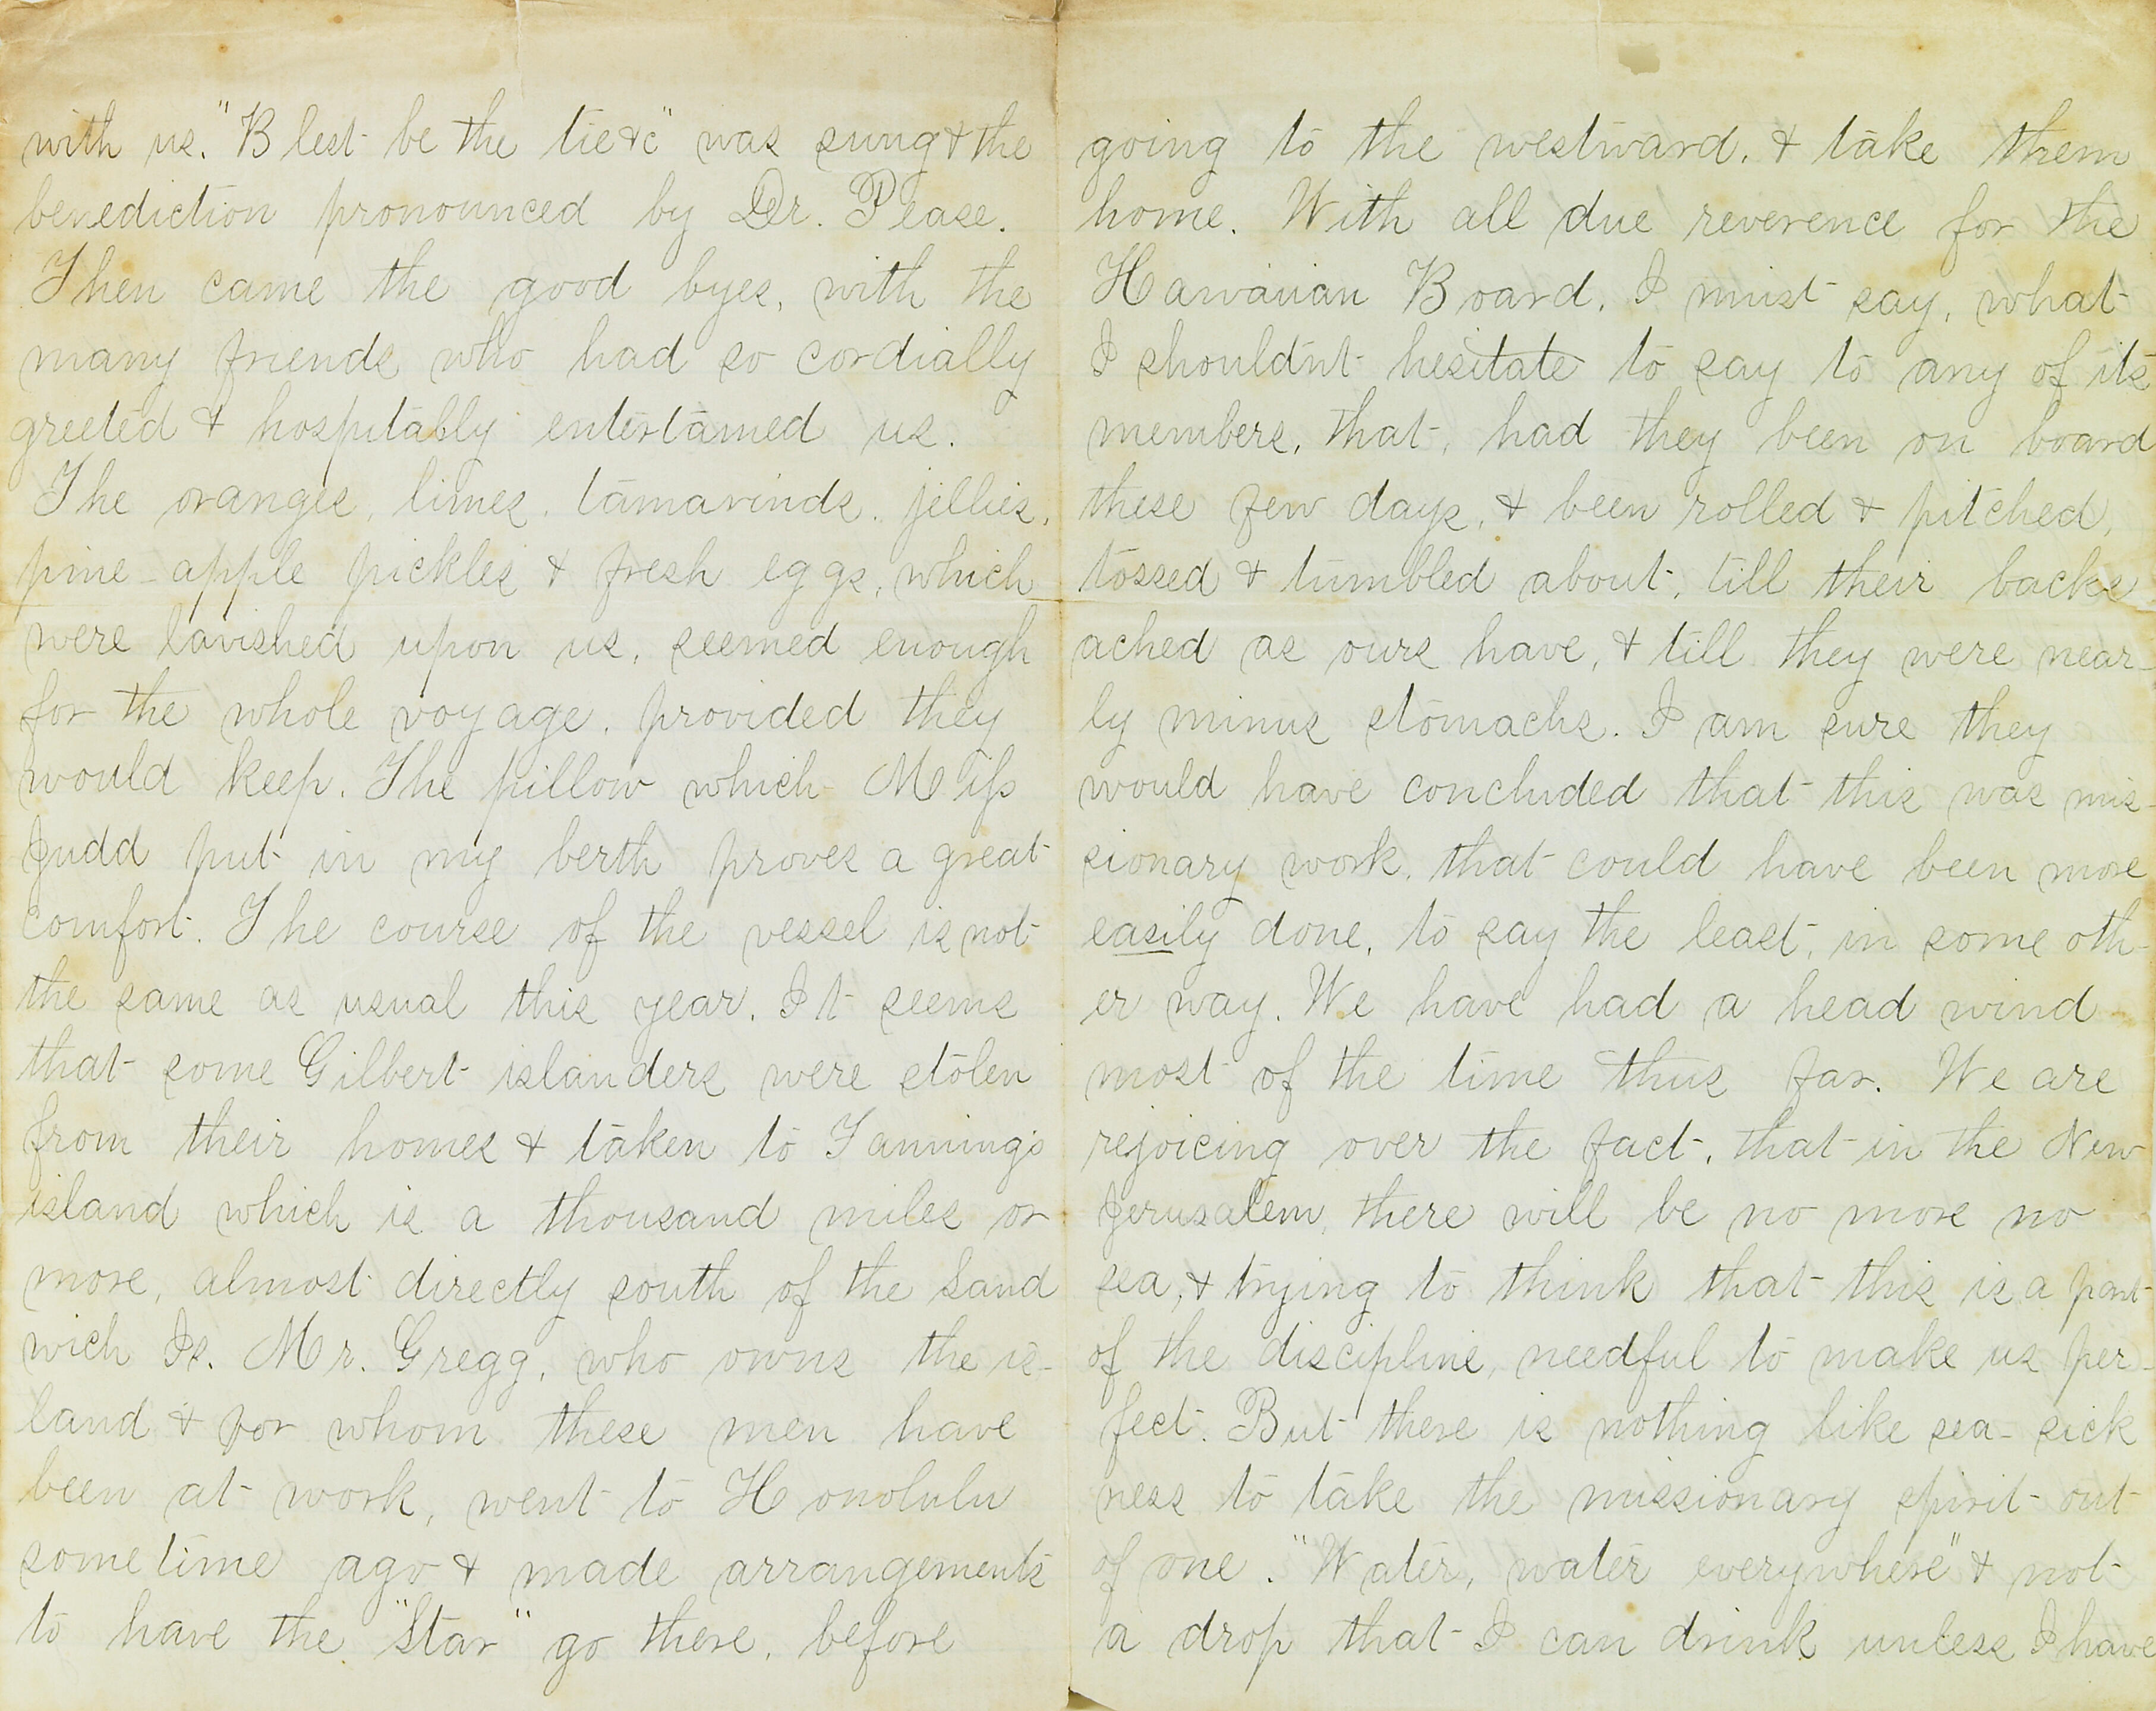 with us. "Blest be the tie &c" was sung & the
benediction pronounced by Dr. Pease.
Then came the good byes, with the
many friends who had so cordially
greeted & hospitably entertained us.
The oranges, limes, tamarinds, jellies,
pine-apple pickles & fresh eggs, which
were lavished upon us, seemed enough
for the whole voyage, provided they
would keep. The pillow which Miss
Judd put in my berth proves a great
comfort. The course of the vessel is not
the same as usual this year. It seems
that some Gilbert islanders were stolen
from their homes & taken to Fanning's
island which is a thousand miles or
more, almost directly south of the Sand
wich Is. Mr. Gregg, who owns the is-
land & for whom these men have
been at work, went to Honolulu
sometime ago & made arrangements
to have the "Star" go there, before
going to the westward, & take them
home. With all due reverence for the
Hawaiian Board, I must say, what
I shouldn't hesitate to say to any of its
members, that, had they been on board
these few days, & been rolled & pitched,
tossed & tumbled about, till their backs
ached as ours have, & till they were near-
ly minus stomachs. I am sure they
would have concluded that this was mis-
sionary work, that could have been more
easily done, to say the least, in some oth-
er way. We have had a head wind
most of the time thus far. We are
rejoicing over the fact, that in the New
Jerusalem, there will be no more no
sea, & trying to think that this is a part
of the discipline, needful to make us per-
fect. But there is nothing like sea-sick
ness to take the missionary spirit out
of one. "Water, water everywhere" & not
a drop that I can drink unless I have